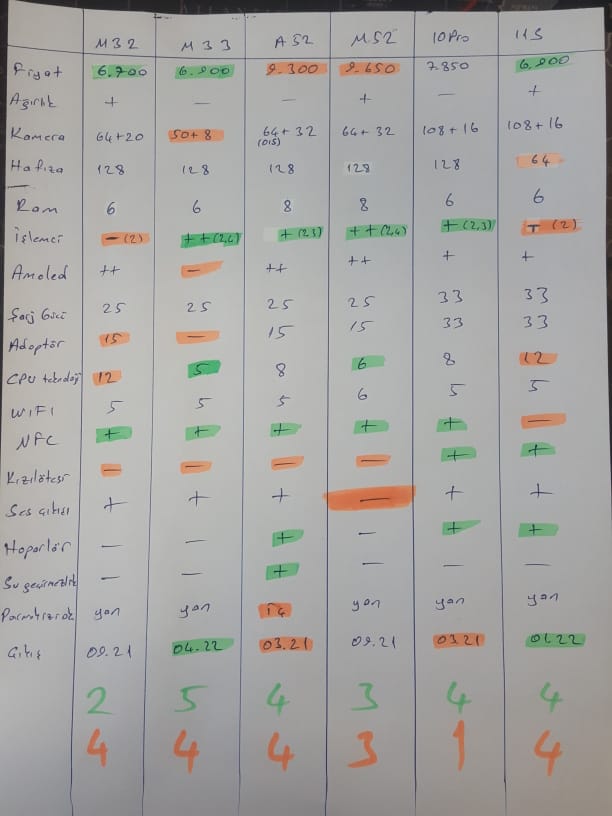 M32 M33 A52 M52 10Pro 11S
Fiyat 6.700 6.900 9.300 9.650 7.850 6.900
Ağırlık + — — + — +
Kamera 64+20 50+8 64+32 (OIS) 64+32 108+16 108+16
Hafıza 128 128 128 128 128 64
Ram 6 6 8 8 6 6
İşlemci — (2) ++ (2,4) + (2,3) ++ (2,4) + (2,3) (2)
Amoled ++ — ++ ++ + +
Şarj Gücü 25 25 25 25 33 33
Adaptör 15 — 15 15 33 33
CPU teknoloji 12 5 8 6 8 12
WIFI 5 5 5 6 5 5
NFC + + + + + —
Kızılötesi — — — — + +
Ses çıkışı + + + — + +
Hoparlör — — + — + +
Su geçirmezlik — — + — — —
Parmak izi yan yan yan yan yan
Çıkış 09.21 04.22 03.21 09.21 03.21 01.22
2 5 4 3 4 4
4 4 4 3 1 4